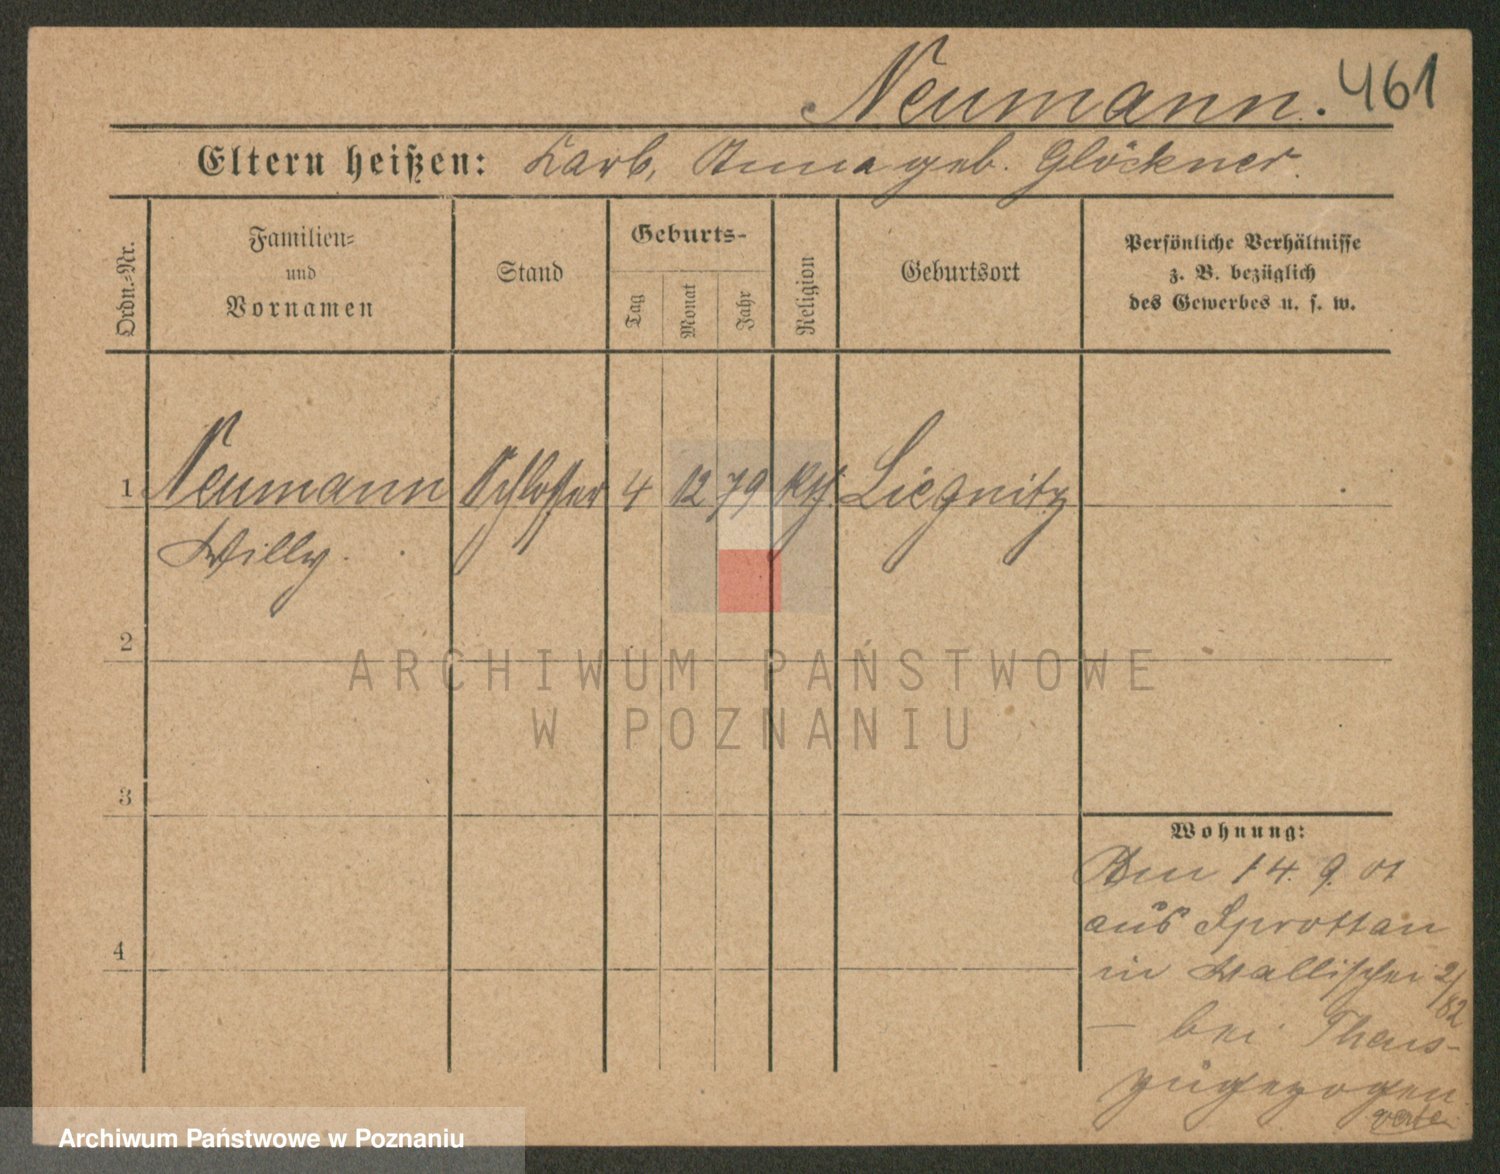 Neumann. 461
Eltern heißen: Karl, Anna geb. Glöckner.
Ordn.-Nr.
Familien-
und
Vornamen
Stand
Geburts-
Tag
Monat
Jahr
Religion
Geburtsort
Persönliche Verhältnisse
z. B. bezüglich
des Gewerbes u. s. w.
1 Neumann Schlosser 4 12 79 Liegnitz
Willy.
2
ARCHIWUM PAŃSTWOWE
W POZNANIU
3
Wohnung:
Am 14. 9. 01
aus Sprottau
4
in Wallischei 2/
82
– bei
zugezogen
Archiwum Państwowe w Poznaniu